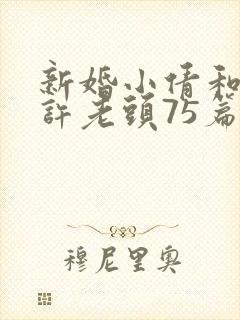 新婚小倩和
許老頭75篇
穆尼里奥